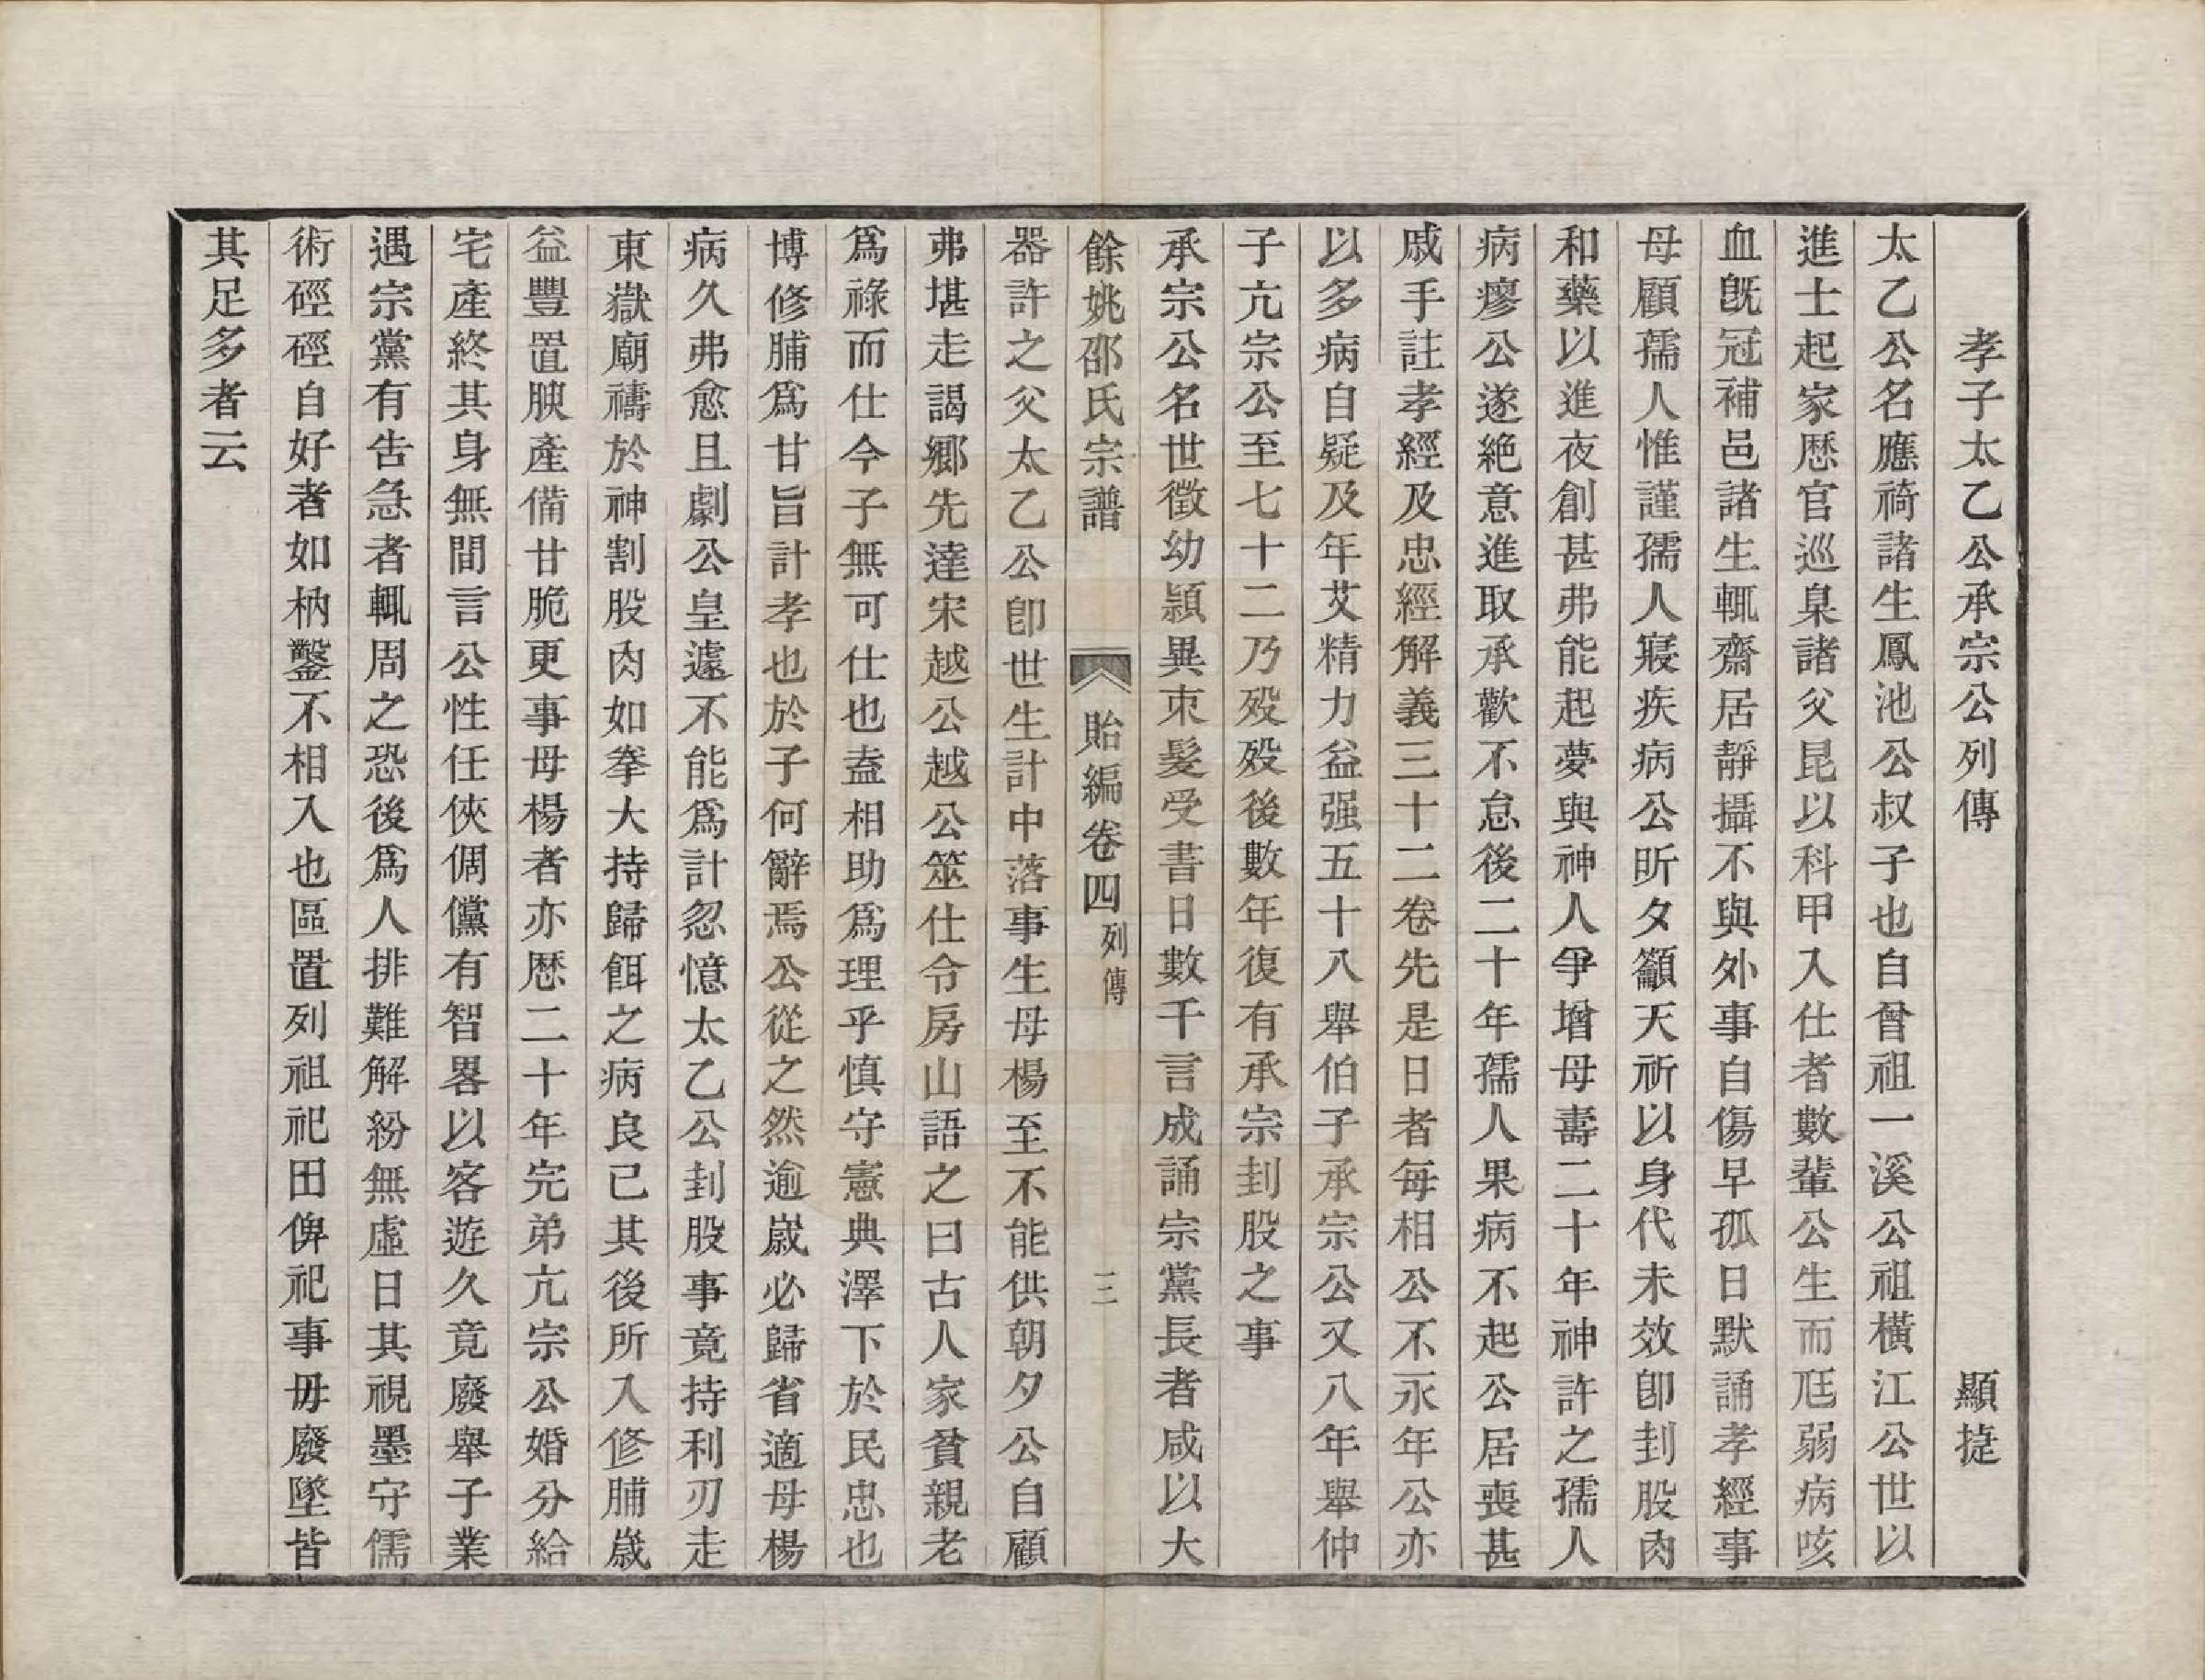 孝子太乙公承宗公列傳　顯㨗
太乙公名應祷諸生鳳池公叔子也自曾祖一溪公祖橫江公世以
進士起家歷官巡臬諸父昆以科甲入仕者數輩公生而尫弱病咳
血旣冠補邑諸生輒齋居靜攝不與外事自傷早孤日默誦孝經事
母顧孺人惟謹孺人寢疾病公昕夕籲天祈以身代未效卽刲股肉
和藥以進夜創甚弗能起夢與神人爭增母壽二十年神許之孺人
病瘳公遂絶意進取承歡不怠後二十年孺人果病不起公居喪甚
戚手註孝經及忠經解義三十二卷先是日者每相公不永年公亦
以多病自疑及年艾精力益强五十八舉伯子承宗公又八年舉仲
子亢宗公至七十二乃殁殁後數年復有承宗刲股之事
承宗公名世徵幼頴異束髮受書日數千言成誦宗黨長者咸以大
餘姚邵氏宗譜　貽編卷四　列傳　三
器許之父太乙公卽世生計中落事生母楊至不能供朝夕公自顧
弗堪走謁鄉先達宋越公越公筮仕令房山語之曰古人家貧親老
爲祿而仕今子無可仕也盍相助爲理乎慎守憲典澤下於民忠也
博修脯爲甘旨計孝也於子何辭焉公從之然逾嵗必歸省適母楊
病久弗愈且劇公皇遽不能爲計忽憶太乙公刲股事竟持利刃走
東嶽廟禱於神割股肉如拳大持歸餌之病良已其後所入修脯嵗
益豐置腴產備甘脆更事母楊者亦歷二十年完弟亢宗公婚分給
宅產終其身無間言公性任俠倜儻有智畧以客遊久竟廢舉子業
遇宗黨有告急者輒周之恐後爲人排難解紛無虛日其視墨守儒
術硜硜自好者如枘鑿不相入也區置列祖祀田俾祀事毋廢墜皆
其足多者云